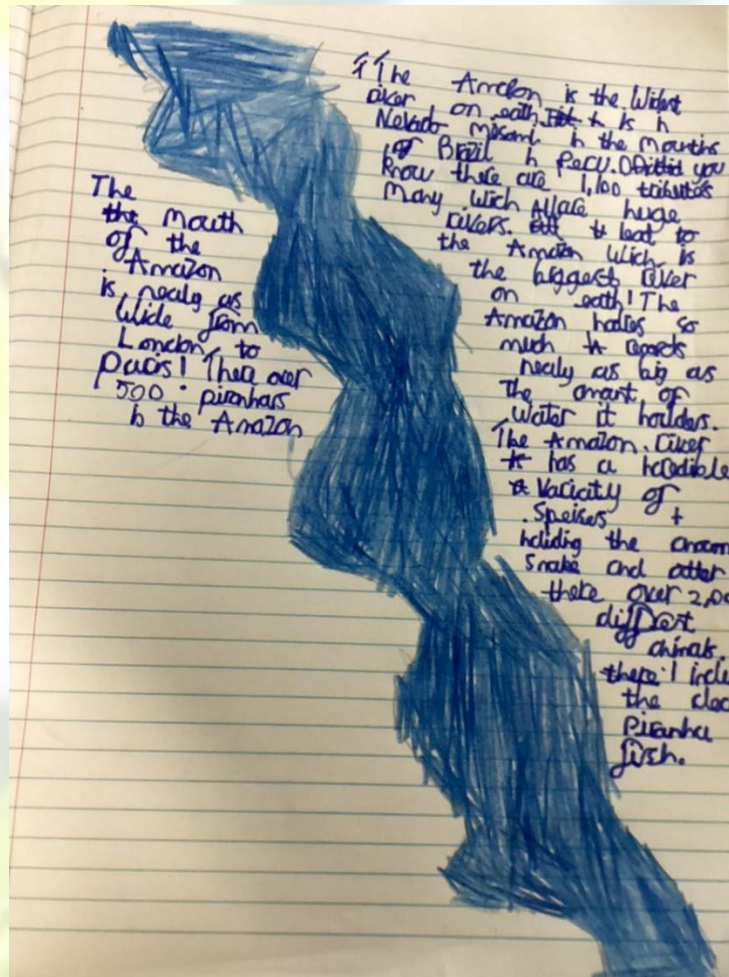 The
mouth
of the
Amazon
is nealy as
wide from
London, to
Paris! Ther over
500 piranhars
in the Amazon
The Amazon is the widest
river on eath. It is in
Nevado Mismi in the mountins
of Brazil in Peru. Did you
know there are 1,100 tributares
many wich All are huge
rivers. leat to
the Amazon wich is
the biggest river
on eath! The
Amazon holdes so
much
nealy as big as
the amant of
water it houlders.
The Amazon river
has a incredible
Varicity of
Speises
incliding the
snake and otter
there over
diffrent
animals.
there
the
Piranha
fish.